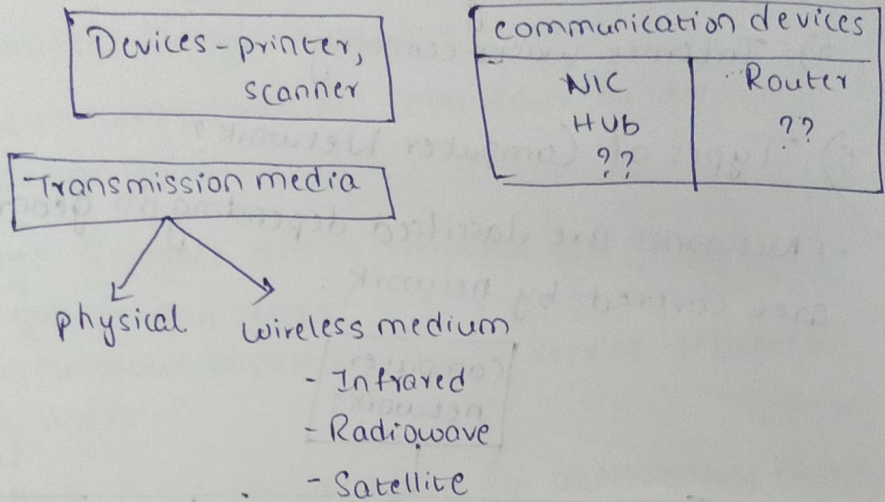 Devices - printer,
scanner
communication devices
NIC
Router
Hub
??
??
Transmission media
physical
wireless medium
- Infrared
- Radiowave
- Satellite